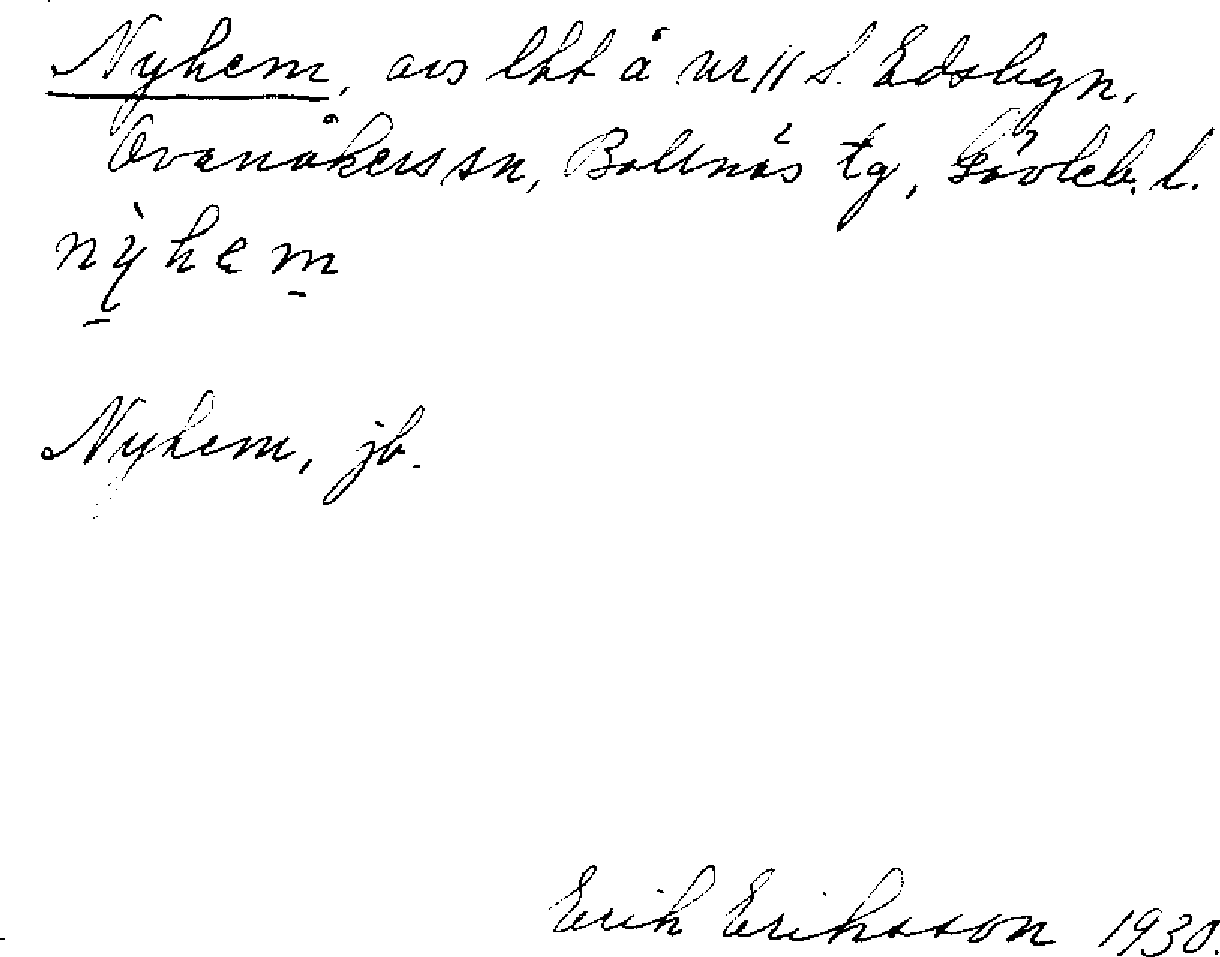 Nyhem, avs lht å nr 11 S. Edsbyn,
Ovanåkers sn, Bollnäs tg, Gävleb. l.
nỳhem
Nyhem, jb.
Erik Eriksson 1930.